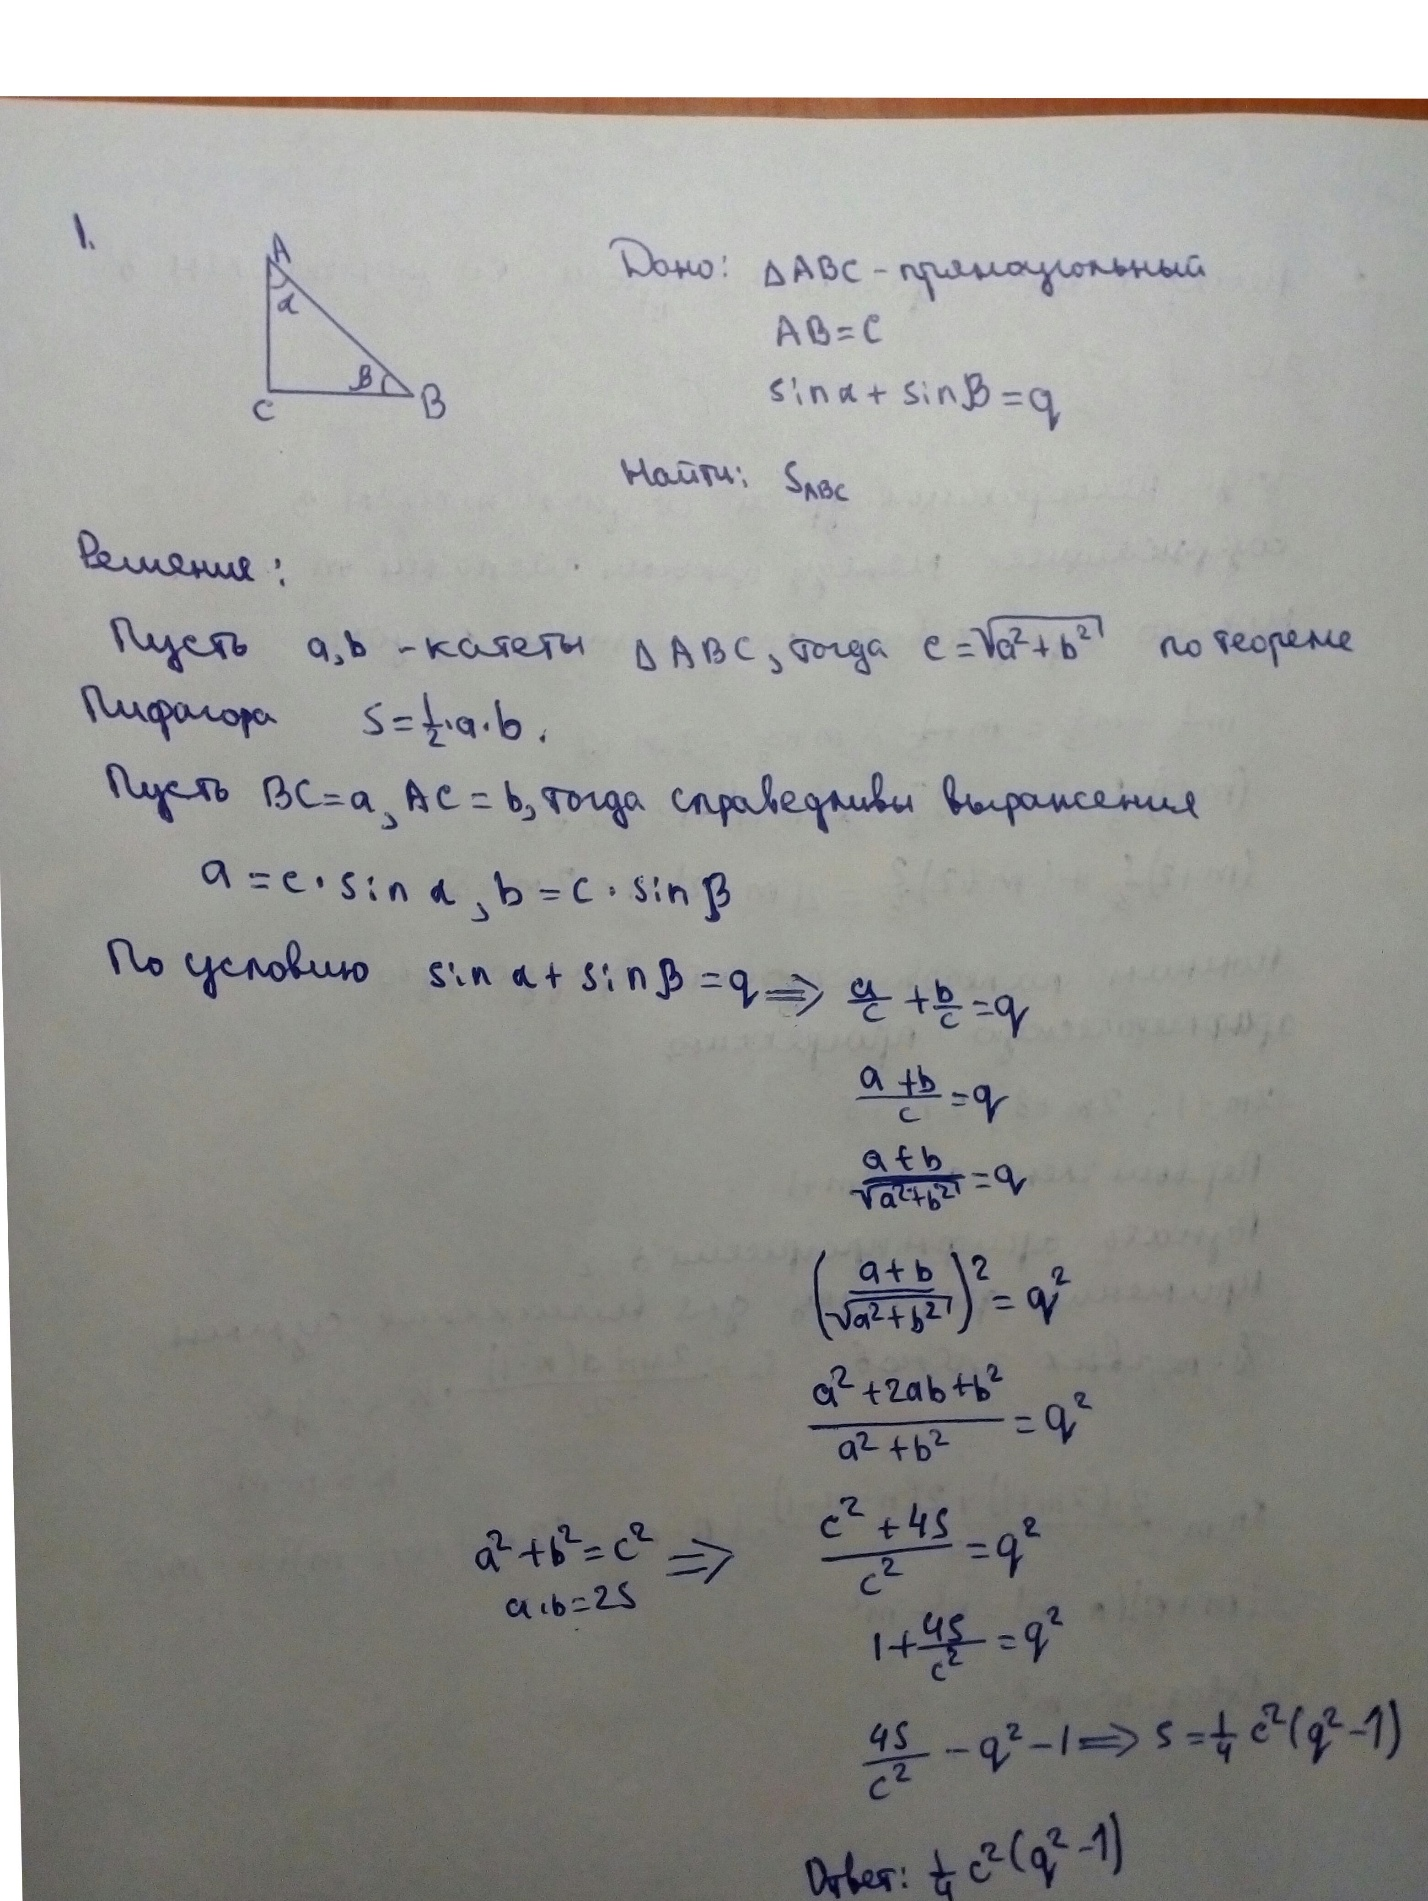 1.
A
α
β
C
B
Дано: △ABC - прямоугольный
AB=c
sinα + sinβ = q
Найти: S_ABC
Решение:
Пусть a,b - катеты △ABC, тогда c=√(a²+b²) по теореме
Пифагора S=1/2·a·b.
Пусть BC=a, AC=b, тогда справедливы выражения
a=c·sinα, b=c·sinβ
По условию sinα+sinβ=q ⇒ a/c + b/c = q
(a+b)/c = q
(a+b)/√(a²+b²) = q
((a+b)/√(a²+b²))² = q²
(a²+2ab+b²)/(a²+b²) = q²
a²+b²=c²
a·b=2S
⇒ (c²+4S)/c² = q²
1+4S/c² = q²
4S/c² - q² - 1 ⇒ S=1/4 c²(q²-1)
Ответ: 1/4 c²(q²-1)